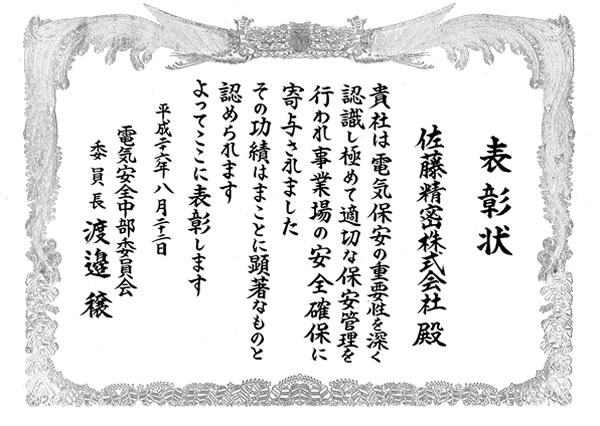 表彰状
佐藤精密株式会社 殿
貴社は電気保安の重要性を深く
認識し極めて適切な保安管理を
行われ事業場の安全確保に
寄与されました
その功績はまことに顕著なものと
認められます
よってここに表彰します
平成二十六年八月二十二日
電気安全中部委員会
委員長 渡邉穣